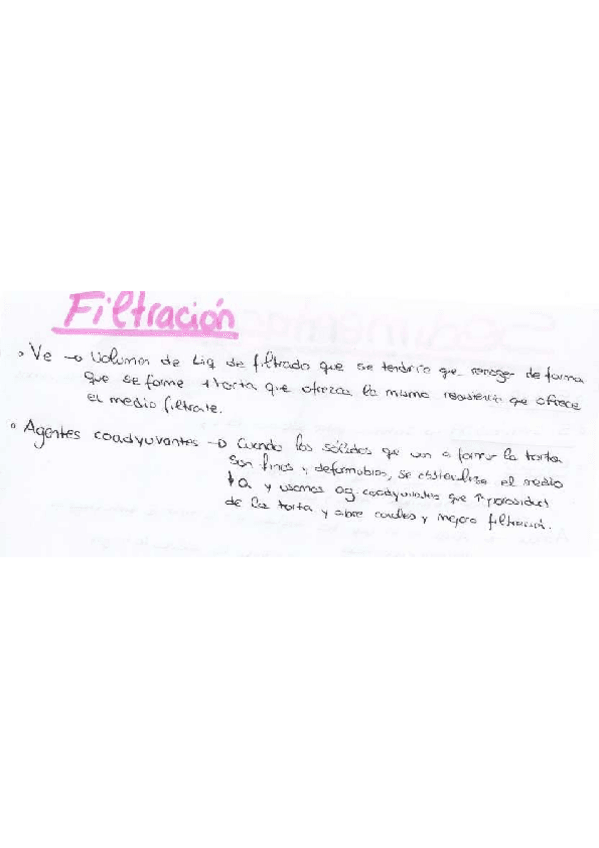 Filtración
• Ve → Volumen de Liq de filtrado que se tendría que recoger de forma
que se forme torta que ofrezca la misma resistencia que ofrece
el medio filtrate.
• Agentes coadyuvantes → Cuando los sólidos que van a formar la torta
son finos y deformables, se el medio
y usamos ag coadyuvantes que ↑ porosidad
de la torta y abre canales y mejora filtración.